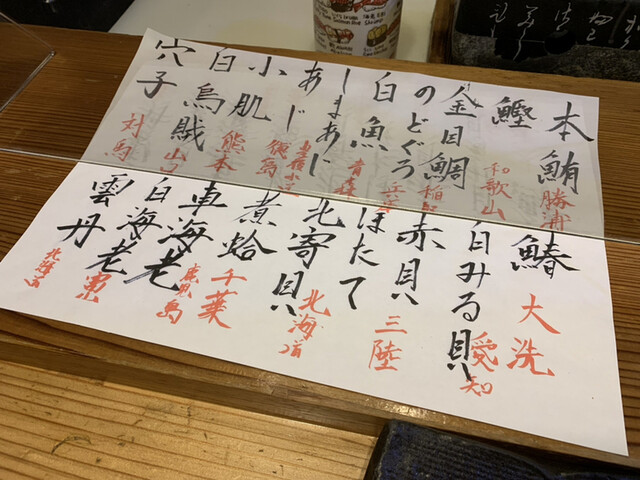 本鮪
勝浦
鰹
和歌山
金目鯛
稲取
のどぐろ
白魚
青森
しまあじ
あじ
小肌
熊本
白烏賊
山口
穴子
対馬
鰆
大洗
白みる貝
愛知
赤貝
三陸
ほたて
北寄貝
北海道
煮蛤
千葉
車海老
鹿児島
白海老
雲丹
北海道